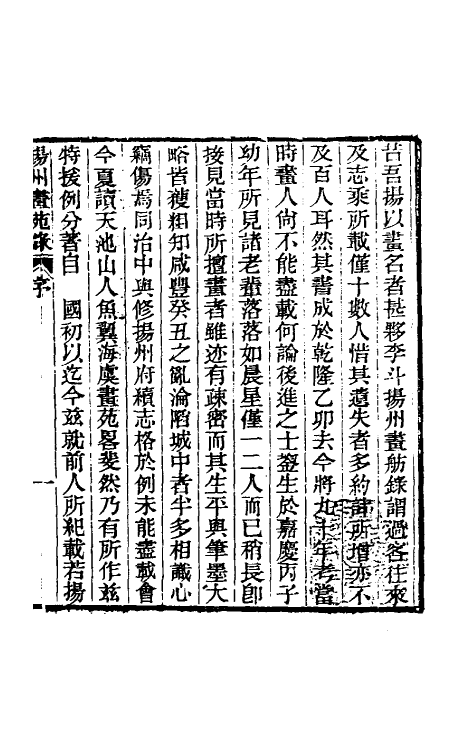 昔吾揚以畫名者甚夥李斗揚州畫舫錄謂過客往來
及志乘所載僅十數人惜其遺失者多約計所增亦不
及百人耳然其書成於乾隆乙卯去今將九十年考當
時畫人尙不能盡載何論後進之士鋆生於嘉慶丙子
幼年所見諸老輩落落如晨星僅一二人而已稍長卽
接見當時所擅畫者雖迹有疎密而其生平與筆墨大
略皆獲粗知咸豐癸丑之亂淪陷城中者半多相識心
竊傷焉同治中與修揚州府續志格於例未能盡載會
今夏讀天池山人魚翼海虞畫苑畧斐然乃有所作兹
特援例分著自　國初以迄今兹就前人所紀載若揚
揚州畫苑錄　序　一